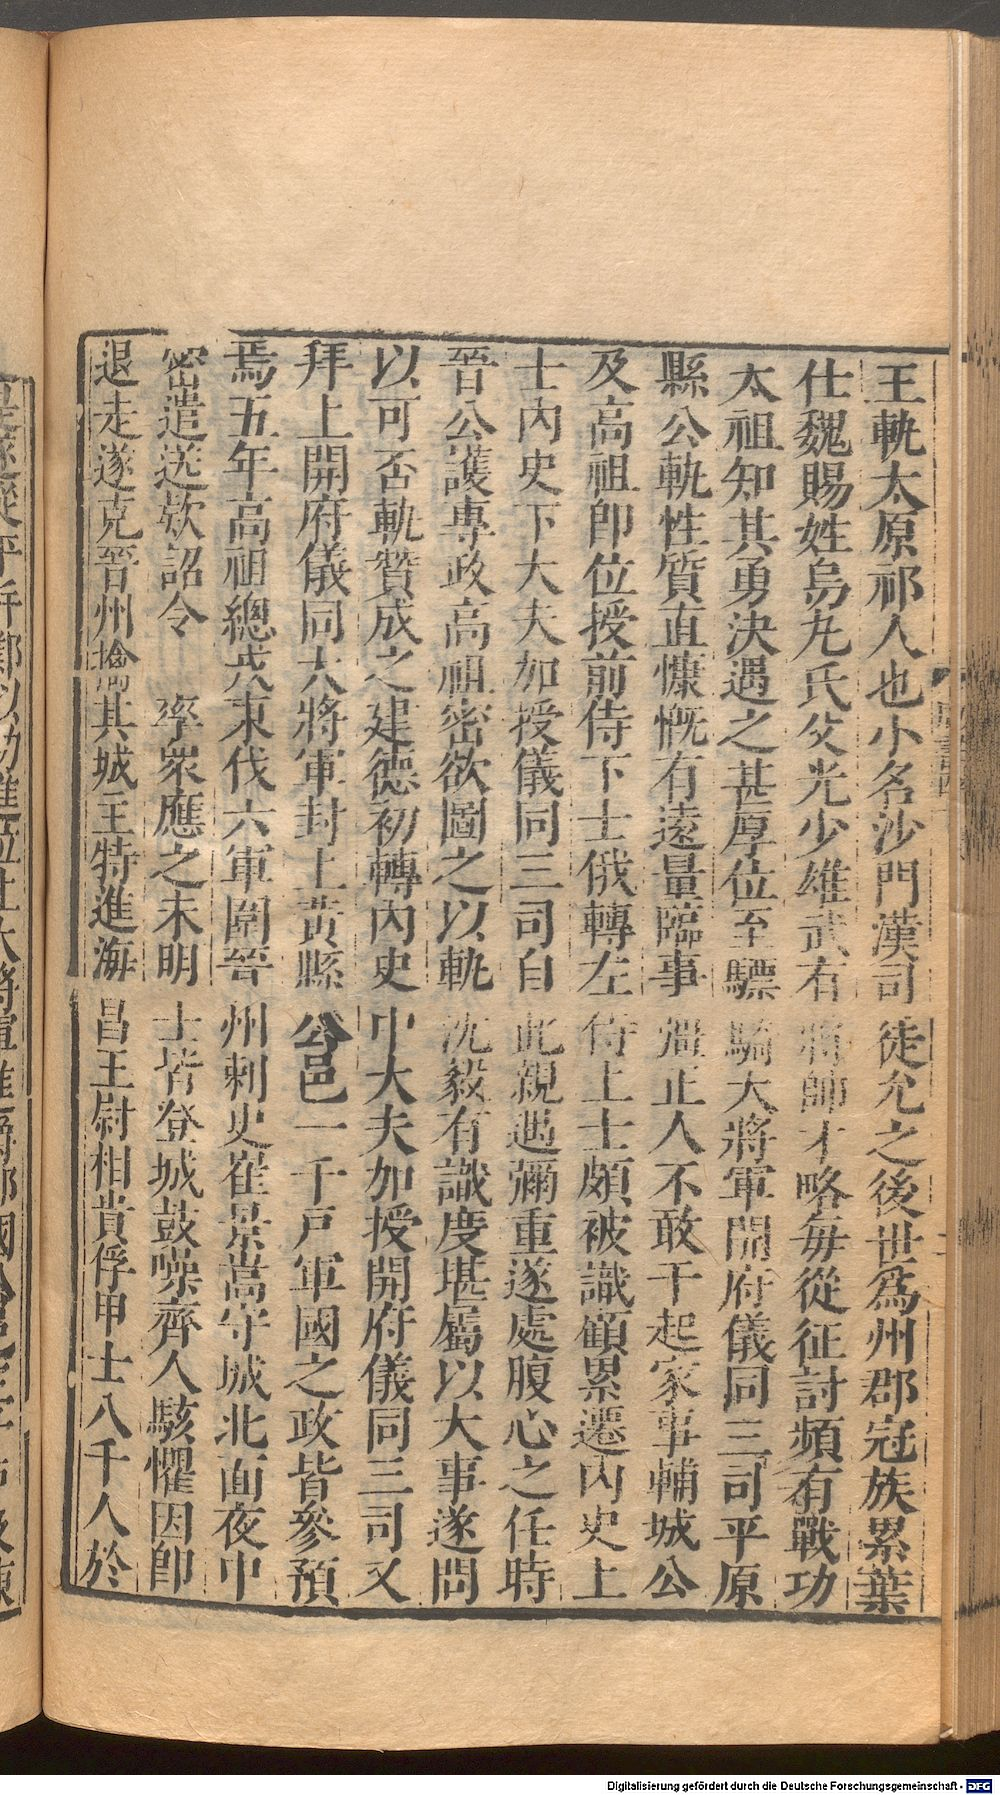 王軌太原祁人也小名沙門漢司徒允之後世爲州郡冠族累葉
仕魏賜姓烏丸氏父光少雄武有將帥才略每從征討頻有戰功
太祖知其勇決遇之甚厚位至驃騎大將軍開府儀同三司平原
縣公軌性質直慷慨有遠量臨事彊正人不敢干起家事輔城公
及高祖即位授前侍下士俄轉左侍上士頗被識顧累遷內史上
士內史下大夫加授儀同三司自此親遇彌重遂處腹心之任時
晉公護專政高祖密欲圖之以軌沈毅有識度堪屬以大事遂問
以可否軌贊成之建德初轉內史中大夫加授開府儀同三司又
拜上開府儀同大將軍封上黃縣公邑一千戸軍國之政皆參預
焉五年高祖總戎東伐六軍圍晉州刺史崔景嵩守城北面夜中
密遣送欵詔令 率衆應之未明士皆登城鼓噪齊人駭懼因卽
退走遂克晉州擒其城王特進海昌王尉相貴俘甲士八千人於
Digitalisierung gefördert durch die Deutsche Forschungsgemeinschaft - DFG